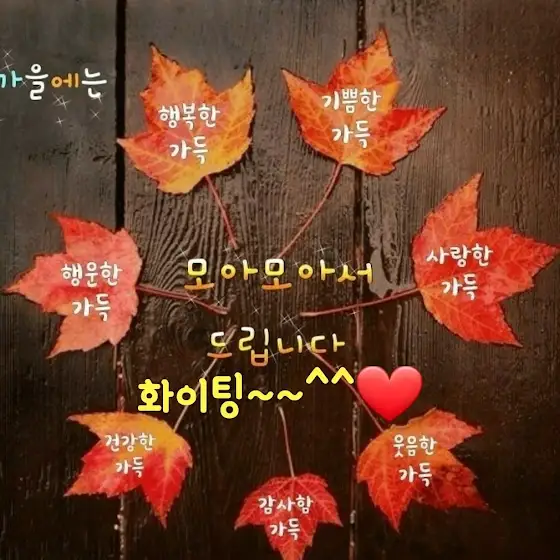 가을에는
행복한
가득
기쁨한
가득
행운한
가득
사랑한
가득
모아모아서
드립니다
화이팅~~^^❤️
건강한
가득
웃음한
가득
감사함
가득